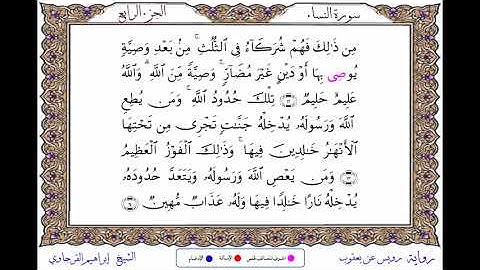 سورة النساء
الجزء الرابع
مِن ذَٰلِكَ فَهُمْ شُرَكَآءُ فِي ٱلثُّلُثِ ۚ مِنۢ بَعْدِ وَصِيَّةٍ
يُوصِى بِهَآ أَوْ دَيْنٍ غَيْرَ مُضَآرٍّ ۚ وَصِيَّةً مِّنَ ٱللَّهِ ۗ وَٱللَّهُ
عَلِيمٌ حَلِيمٌ ۝ تِلْكَ حُدُودُ ٱللَّهِ ۚ وَمَن يُطِعِ
ٱللَّهَ وَرَسُولَهُۥ يُدْخِلْهُ جَنَّٰتٍ تَجْرِى مِن تَحْتِهَا
ٱلْأَنْهَٰرُ خَٰلِدِينَ فِيهَا ۚ وَذَٰلِكَ ٱلْفَوْزُ ٱلْعَظِيمُ
۝ وَمَن يَعْصِ ٱللَّهَ وَرَسُولَهُۥ وَيَتَعَدَّ حُدُودَهُۥ
يُدْخِلْهُ نَارًا خَٰلِدًا فِيهَا وَلَهُۥ عَذَابٌ مُّهِينٌ ۝
رواية رويس عن يعقوب
الإمالة
الإدغام
الشيخ إبراهيم الفرجاوي